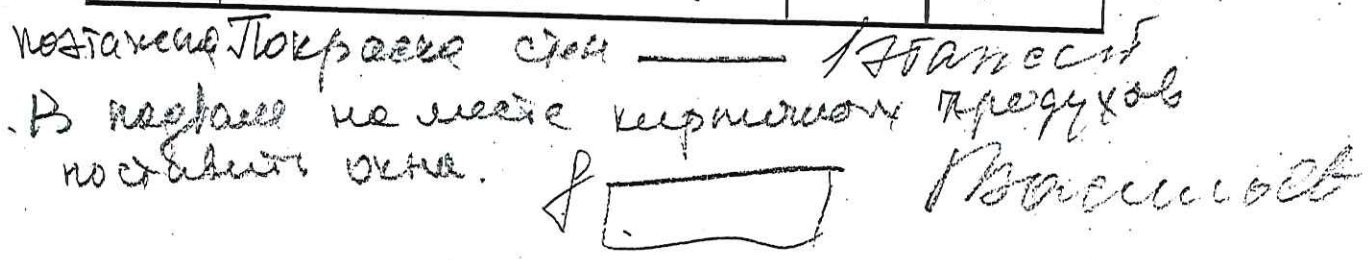 поэтажена Покраска стен —— 1 этаж есть
. В подвале на месте кирпичных продухов
поставить окна.
Васильев